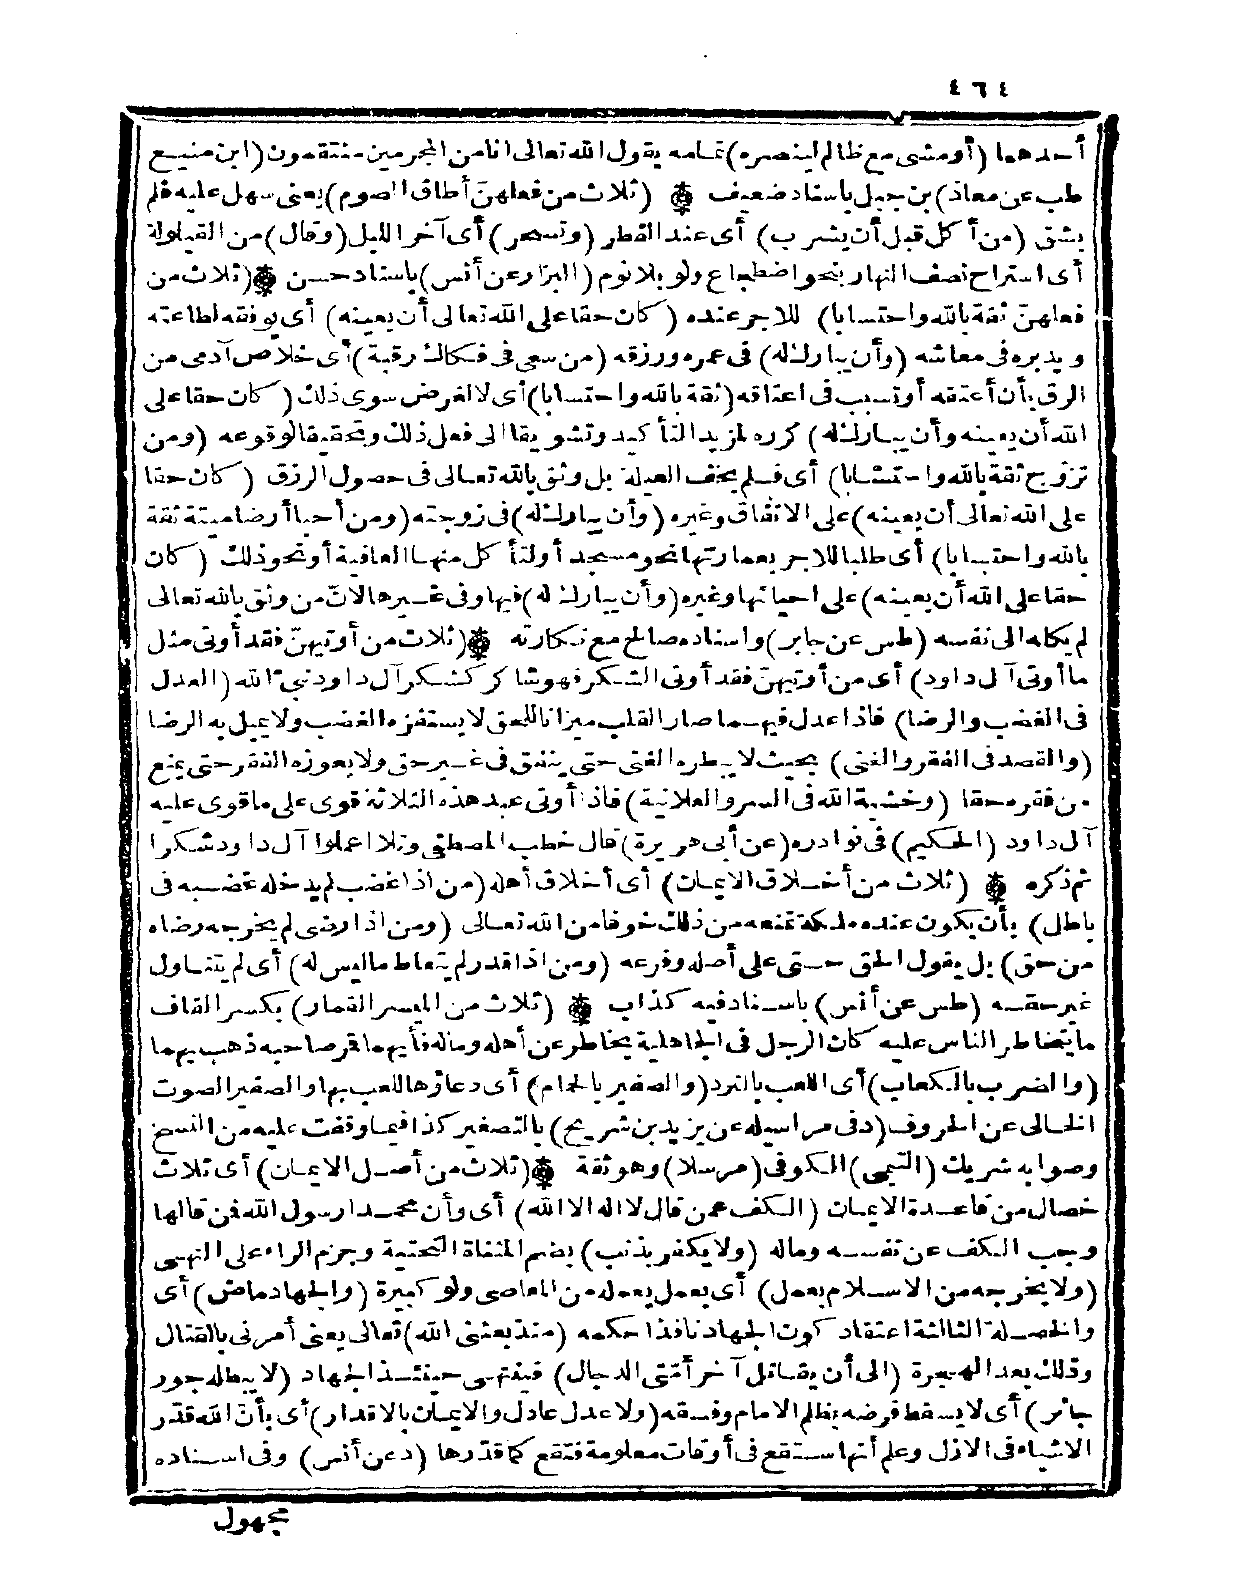 ٤٦٤
أحدهما (أو مشى مع ظالم لينصره) تمامه يقول الله تعالى انا من المجرمين منتقمون (ابن منيع
طب عن معاذ) بن جبل باسناد ضعيف ۞ (ثلاث من فعلهنّ أطاق الصوم) يعنى سهل عليه فلم
يشق (من أكل قبل أن يشرب) أى عند الفطر (وتسحر) أى آخر الليل (وقال) من القيلولة
أى استراح نصف النهار بنحو اضطجاع ولو بلا نوم (البزار عن أنس) باسناد حسن ۞ (ثلاث من
فعلهنّ ثقة بالله واحتسابا) للاجر عنده (كان حقا على الله تعالى أن يعينه) أى يوفقه لطاعته
ويدبره فى معاشه (وأن يبارك له) فى عمره ورزقه (من سعى فى فكاك رقبة) أى خلاص آدمى من
الرق بأن أعتقه أو تسبب فى اعتاقه (ثقة بالله واحتسابا) أى لا لغرض سوى ذلك (كان حقا على
الله أن يعينه وأن يبارك له) كرره لمزيد التأكيد وتشويقا الى فعل ذلك وتحقيقا لوقوعه (ومن
تزوّج ثقة بالله واحتسابا) أى فلم يخف العيلة بل وثق بالله تعالى فى حصول الرزق (كان حقا
على الله تعالى أن يعينه) على الانفاق وغيره (وأن يبارك له) فى زوجته (ومن أحيا أرضا ميتة ثقة
بالله واحتسابا) أى طلبا للاجر بعمارتها نحو مسجد أو لتأكل منها العافية أو نحو ذلك (كان
حقا على الله أن يعينه) على احيائها وغيره (وأن يبارك له) فيها وفى غيرها لانّ من وثق بالله تعالى
لم يكله الى نفسه (طس عن جابر) واسناده صالح مع نكارته ۞ (ثلاث من أوتيهنّ فقد أوتى مثل
ما أوتى آل داود) أى من أوتيهنّ فقد أوتى الشكر فهو شاكر كشكر آل داود نبىّ الله (العدل
فى الغضب والرضا) فاذا عدل فيهما صار القلب ميزانا للحق لا يستفزه الغضب ولا يميل به الرضا
(والقصد فى الفقر والغنى) بحيث لا يبطره الغنى حتى ينفق فى غير حق ولا يعوزه الفقر حتى يمنع
من فقره حقا (وخشية الله فى السر والعلانية) فاذا أوتى عبد هذه الثلاثة قوى على ما قوى عليه
آل داود (الحكيم) فى نوادره (عن أبى هريرة) قال خطب المصطفى وتلا اعملوا آل داود شكرا
ثم ذكره ۞ (ثلاث من أخلاق الايمان) أى أخلاق أهله (من اذا غضب لم يدخله غضبه فى
باطل) بأن يكون عنده ملكة تمنعه من ذلك خوفا من الله تعالى (ومن اذا رضى لم يخرجه رضاه
من حق) بل يقول الحق حتى على أصله وفرعه (ومن اذا قدر لم يتعاط ما ليس له) أى لم يتناول
غير حقه (طس عن أنس) باسناد فيه كذاب ۞ (ثلاث من الميسر القمار) بكسر القاف
ما يتخاطر الناس عليه كان الرجل فى الجاهلية يخاطر عن أهله وماله فأيهما قمر صاحبه ذهب بهما
(والضرب بالكعاب) أى اللعب بالنرد (والصفير بالحمام) أى دعاؤها للعب بها والصفير الصوت
الخالى عن الحروف (د فى مراسيله عن يزيد بن شريح) بالتصغير كذا فيما وقفت عليه من النسخ
وصوابه شريك (التيمى) الكوفى (مرسلا) وهو ثقة ۞ (ثلاث من أصل الايمان) أى ثلاث
خصال من قاعدة الايمان (الكف عمن قال لا اله الا الله) أى وأن محمدا رسول الله فمن قالها
وجب الكف عن نفسه وماله (ولا يكفر بذنب) بضم المثناة التحتية وجزم الراء على النهى
(ولا يخرجه من الاسلام بعمل) أى بعمل يعمله من المعاصى ولو كبيرة (والجهاد ماض) أى
والخصلة الثالثة اعتقاد كون الجهاد نافذا حكمه (منذ بعثنى الله) تعالى يعنى أمرنى بالقتال
وذلك بعد الهجرة (الى أن يقاتل آخر أمّتى الدجال) فينتهى حينئذ الجهاد (لا يبطله جور
جائر) أى لا يسقط فرضه بظلم الامام وفسقه (ولا عدل عادل والايمان بالاقدار) أى بأن الله قدّر
الاشياء فى الازل وعلم أنها ستقع فى أوقات معلومة فتقع كما قدّرها (د عن أنس) وفى اسناده
مجهول